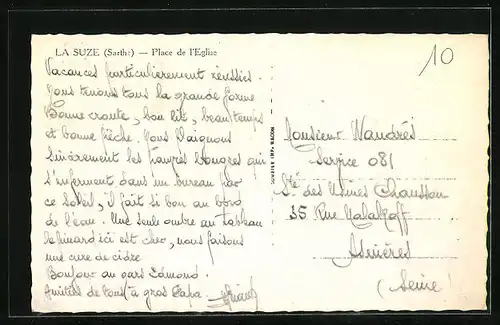 LA SUZE (Sarthe) — Place de l'Eglise
10
Vacances particulièrement réussies.
Nous tenons tous la grande forme
Bonne croute, bon lit, beau temps
et bonne pêche. Nous plaignons
sincèrement les pauvres bougres qui
s'enferment dans un bureau par
ce soleil, il fait si bon au bord
de l'eau. Une seule ombre au tableau
le pinard ici est cher, nous faisons
une cure de cidre
Bonjour au gars Edmond.
Amitiés de tous à gros Papa.
Monsieur Wandrés
Service 081
Sté des Usines Chausson
35 Rue Malakoff
Asnières
(Seine)